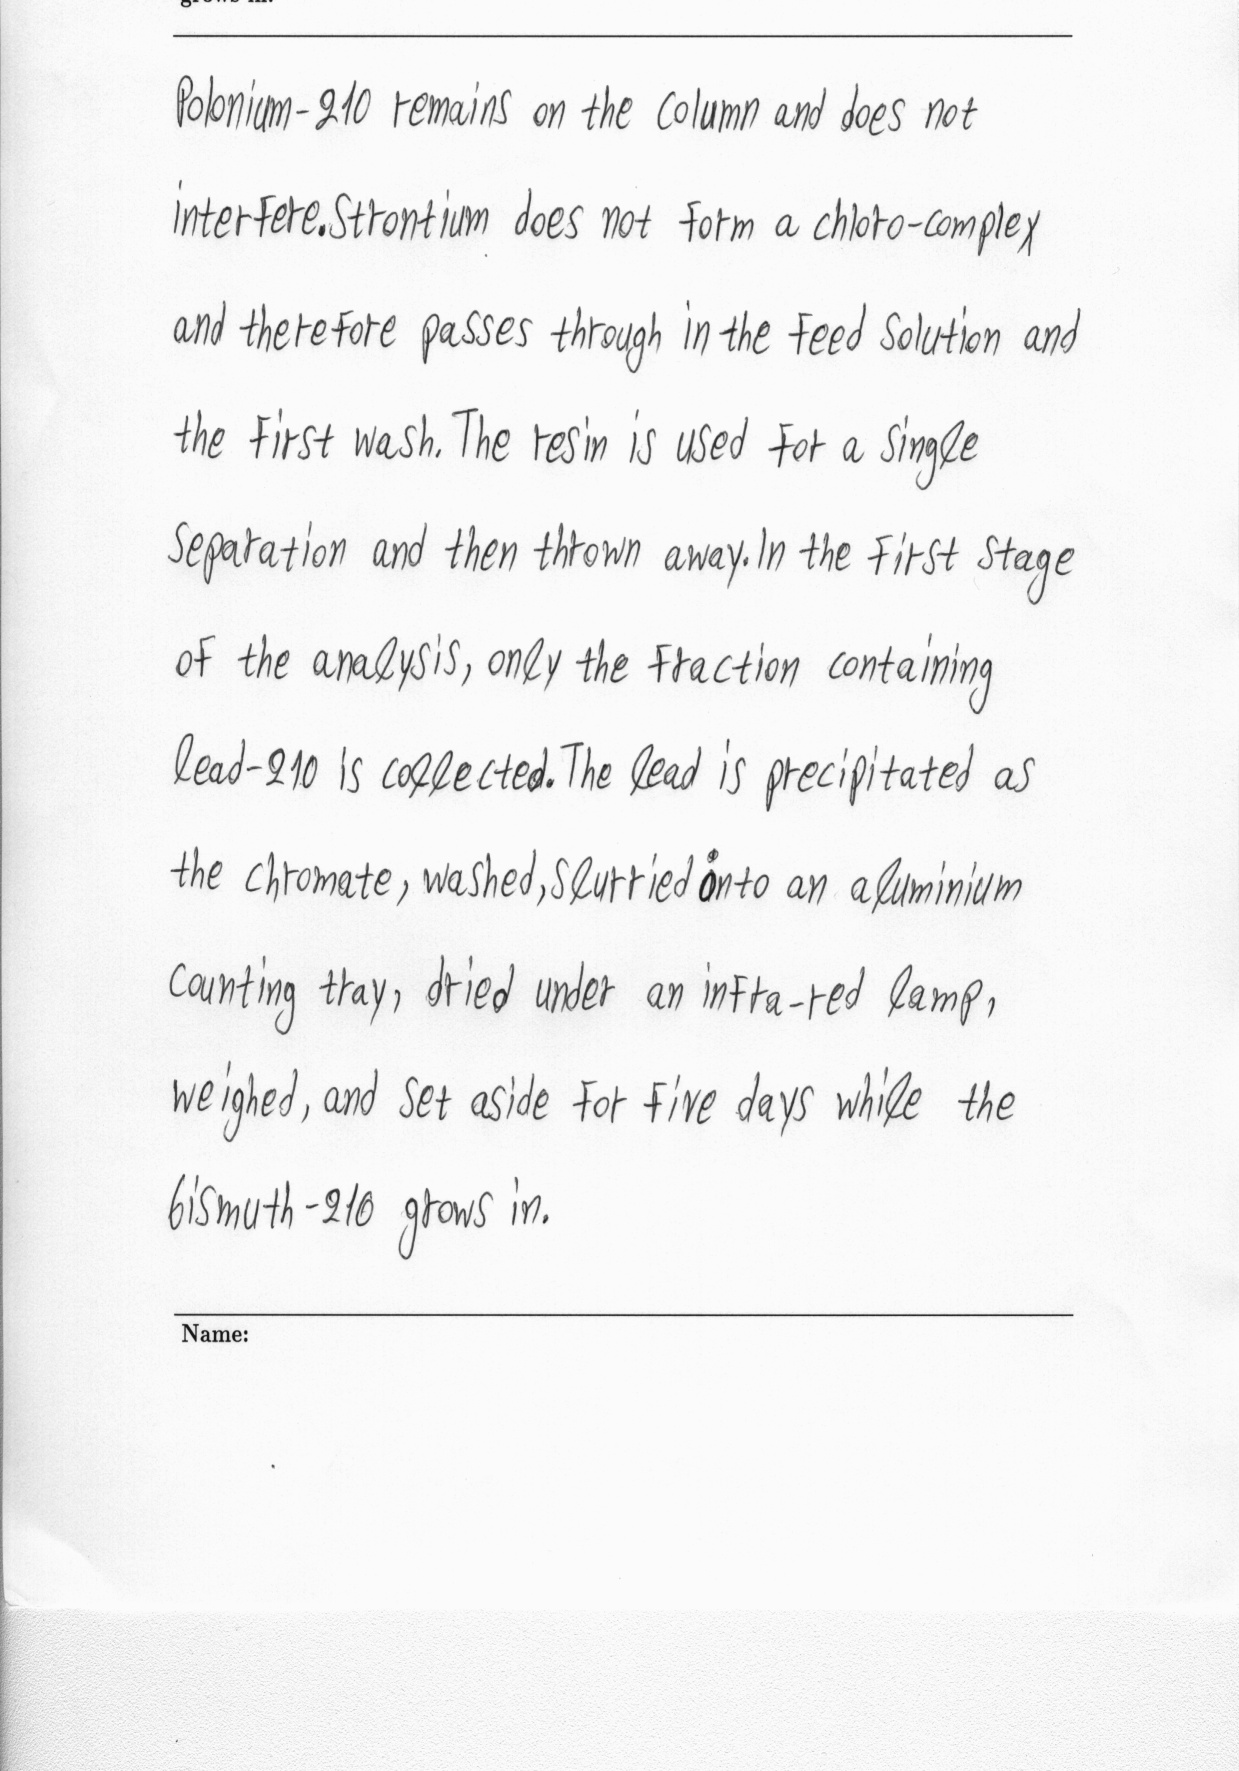 grows in.
Polonium-210 remains on the column and does not
interfere. Strontium does not form a chloro-complex
and therefore passes through in the feed solution and
the first wash. The resin is used for a single
separation and then thrown away. In the first stage
of the analysis, only the fraction containing
lead-210 is collected. The lead is precipitated as
the chromate, washed, slurried onto an aluminium
counting tray, dried under an infra-red lamp,
weighed, and set aside for five days while the
bismuth-210 grows in.
Name: